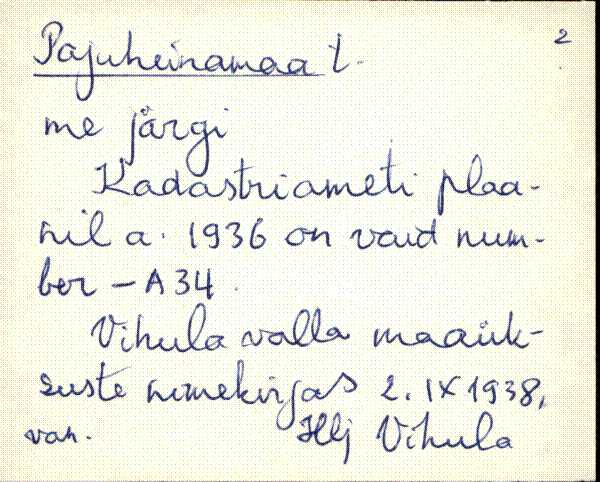 2
Pajuheinamaa t.
me järgi
Kadastriameti plaa-
nil a. 1936 on vaid num-
ber – A 34.
Vihula valla maaük-
suste nimekirjas 2. IX 1938,
van. Hlj Vihula